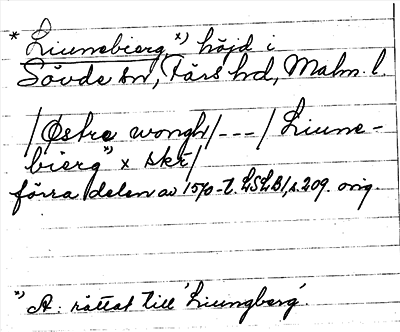 * Liunsbierg, *) höjd i
Sövde sn, Färs hd, Malm. l.
/Østre wongh/---/Liuns-
bierg" *) x skr/
förra delen av 1570-t. LSLB1, s. 209. orig.
*) A: rättat till 'Liungberg'.